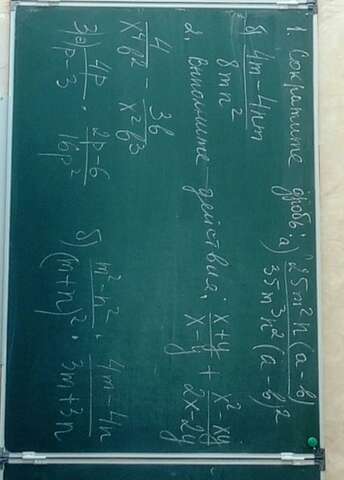 1. Сократите дробь: а) 25m²n(a-b) / 35m³n²(a-b)²
б) 4m-4nm / 8mn²
2. Выполните действия: x+y / x-y + x²-xy / 2x-2y
4 / x⁴b² - 3b / x²b³
3) а) 4p / p-3 · 2p-6 / 16p² б) m²-n² / (m+n)² : 4m-4n / 3m+3n